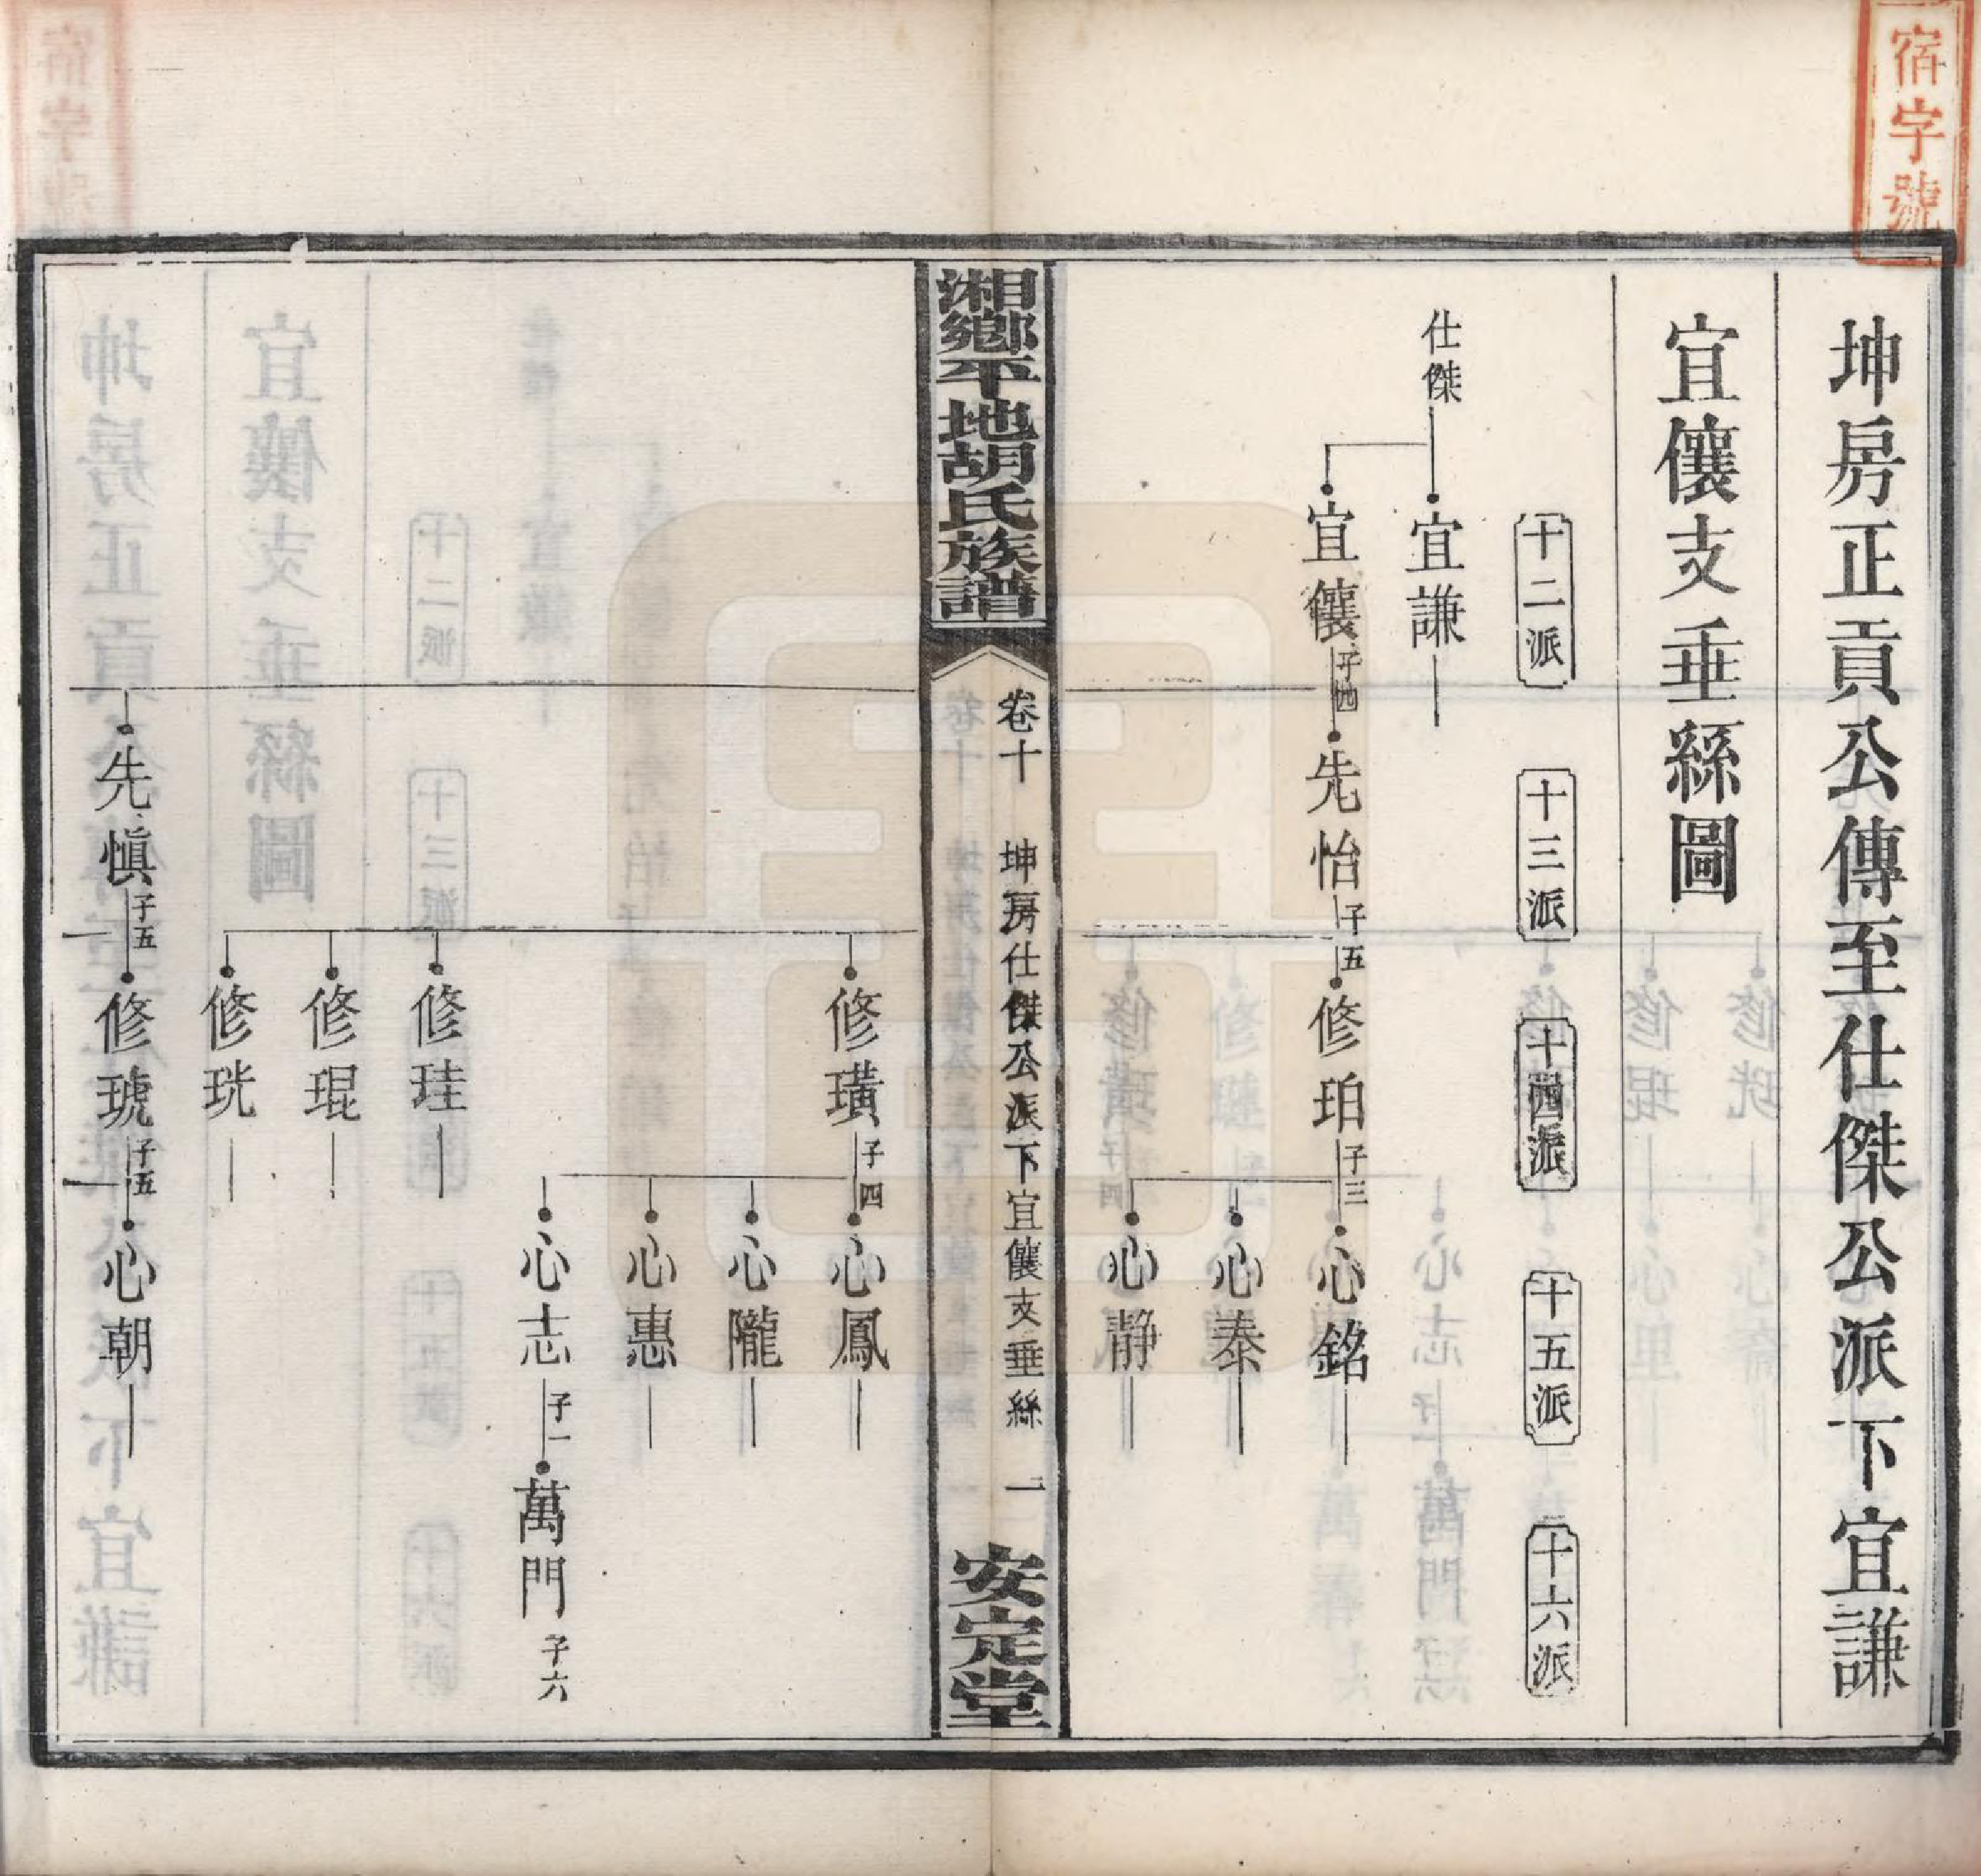 宿字號
坤房正貢公傳至仕傑公派下宜謙
宜儴支垂絲圖
十二派
十三派
十四派
十五派
十六派
仕傑
宜謙
宜儴 子四
先怡 子五
修珀 子三
心銘
心泰
心靜
湘鄉平地胡氏族譜
卷十 坤房仕傑公派下宜儴支垂絲 一
安定堂
修璜 子四
心鳳
心隴
心惠
心志 子一
萬門 子六
修珪
修琨
修珖
先慎 子五
修琥 子五
心朝